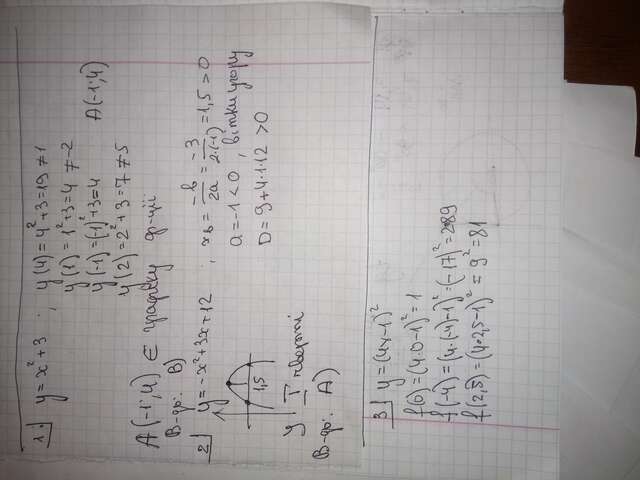 1. y = x² + 3 ; y(4) = 4² + 3 = 19 ≠ 1
y(1) = 1² + 3 = 4 ≠ -2
y(-1) = (-1)² + 3 = 4 A(-1; 4)
y(2) = 2² + 3 = 7 ≠ 5
A(-1; 4) ∈ графіку ф-ції
В-дь: В)
2 y = -x² + 3x + 12 ; xв = -b/2a = -3/2·(-1) = 1,5 > 0
a = -1 < 0 , вітки угору
D = 9 + 4·1·12 > 0
1,5
У I чверті
В-дь: А)
3 y = (4x-1)²
f(0) = (4·0-1)² = 1
f(-4) = (4·(-4)-1)² = (-17)² = 289
f(2,5) = (4·2,5-1)² = 9² = 81